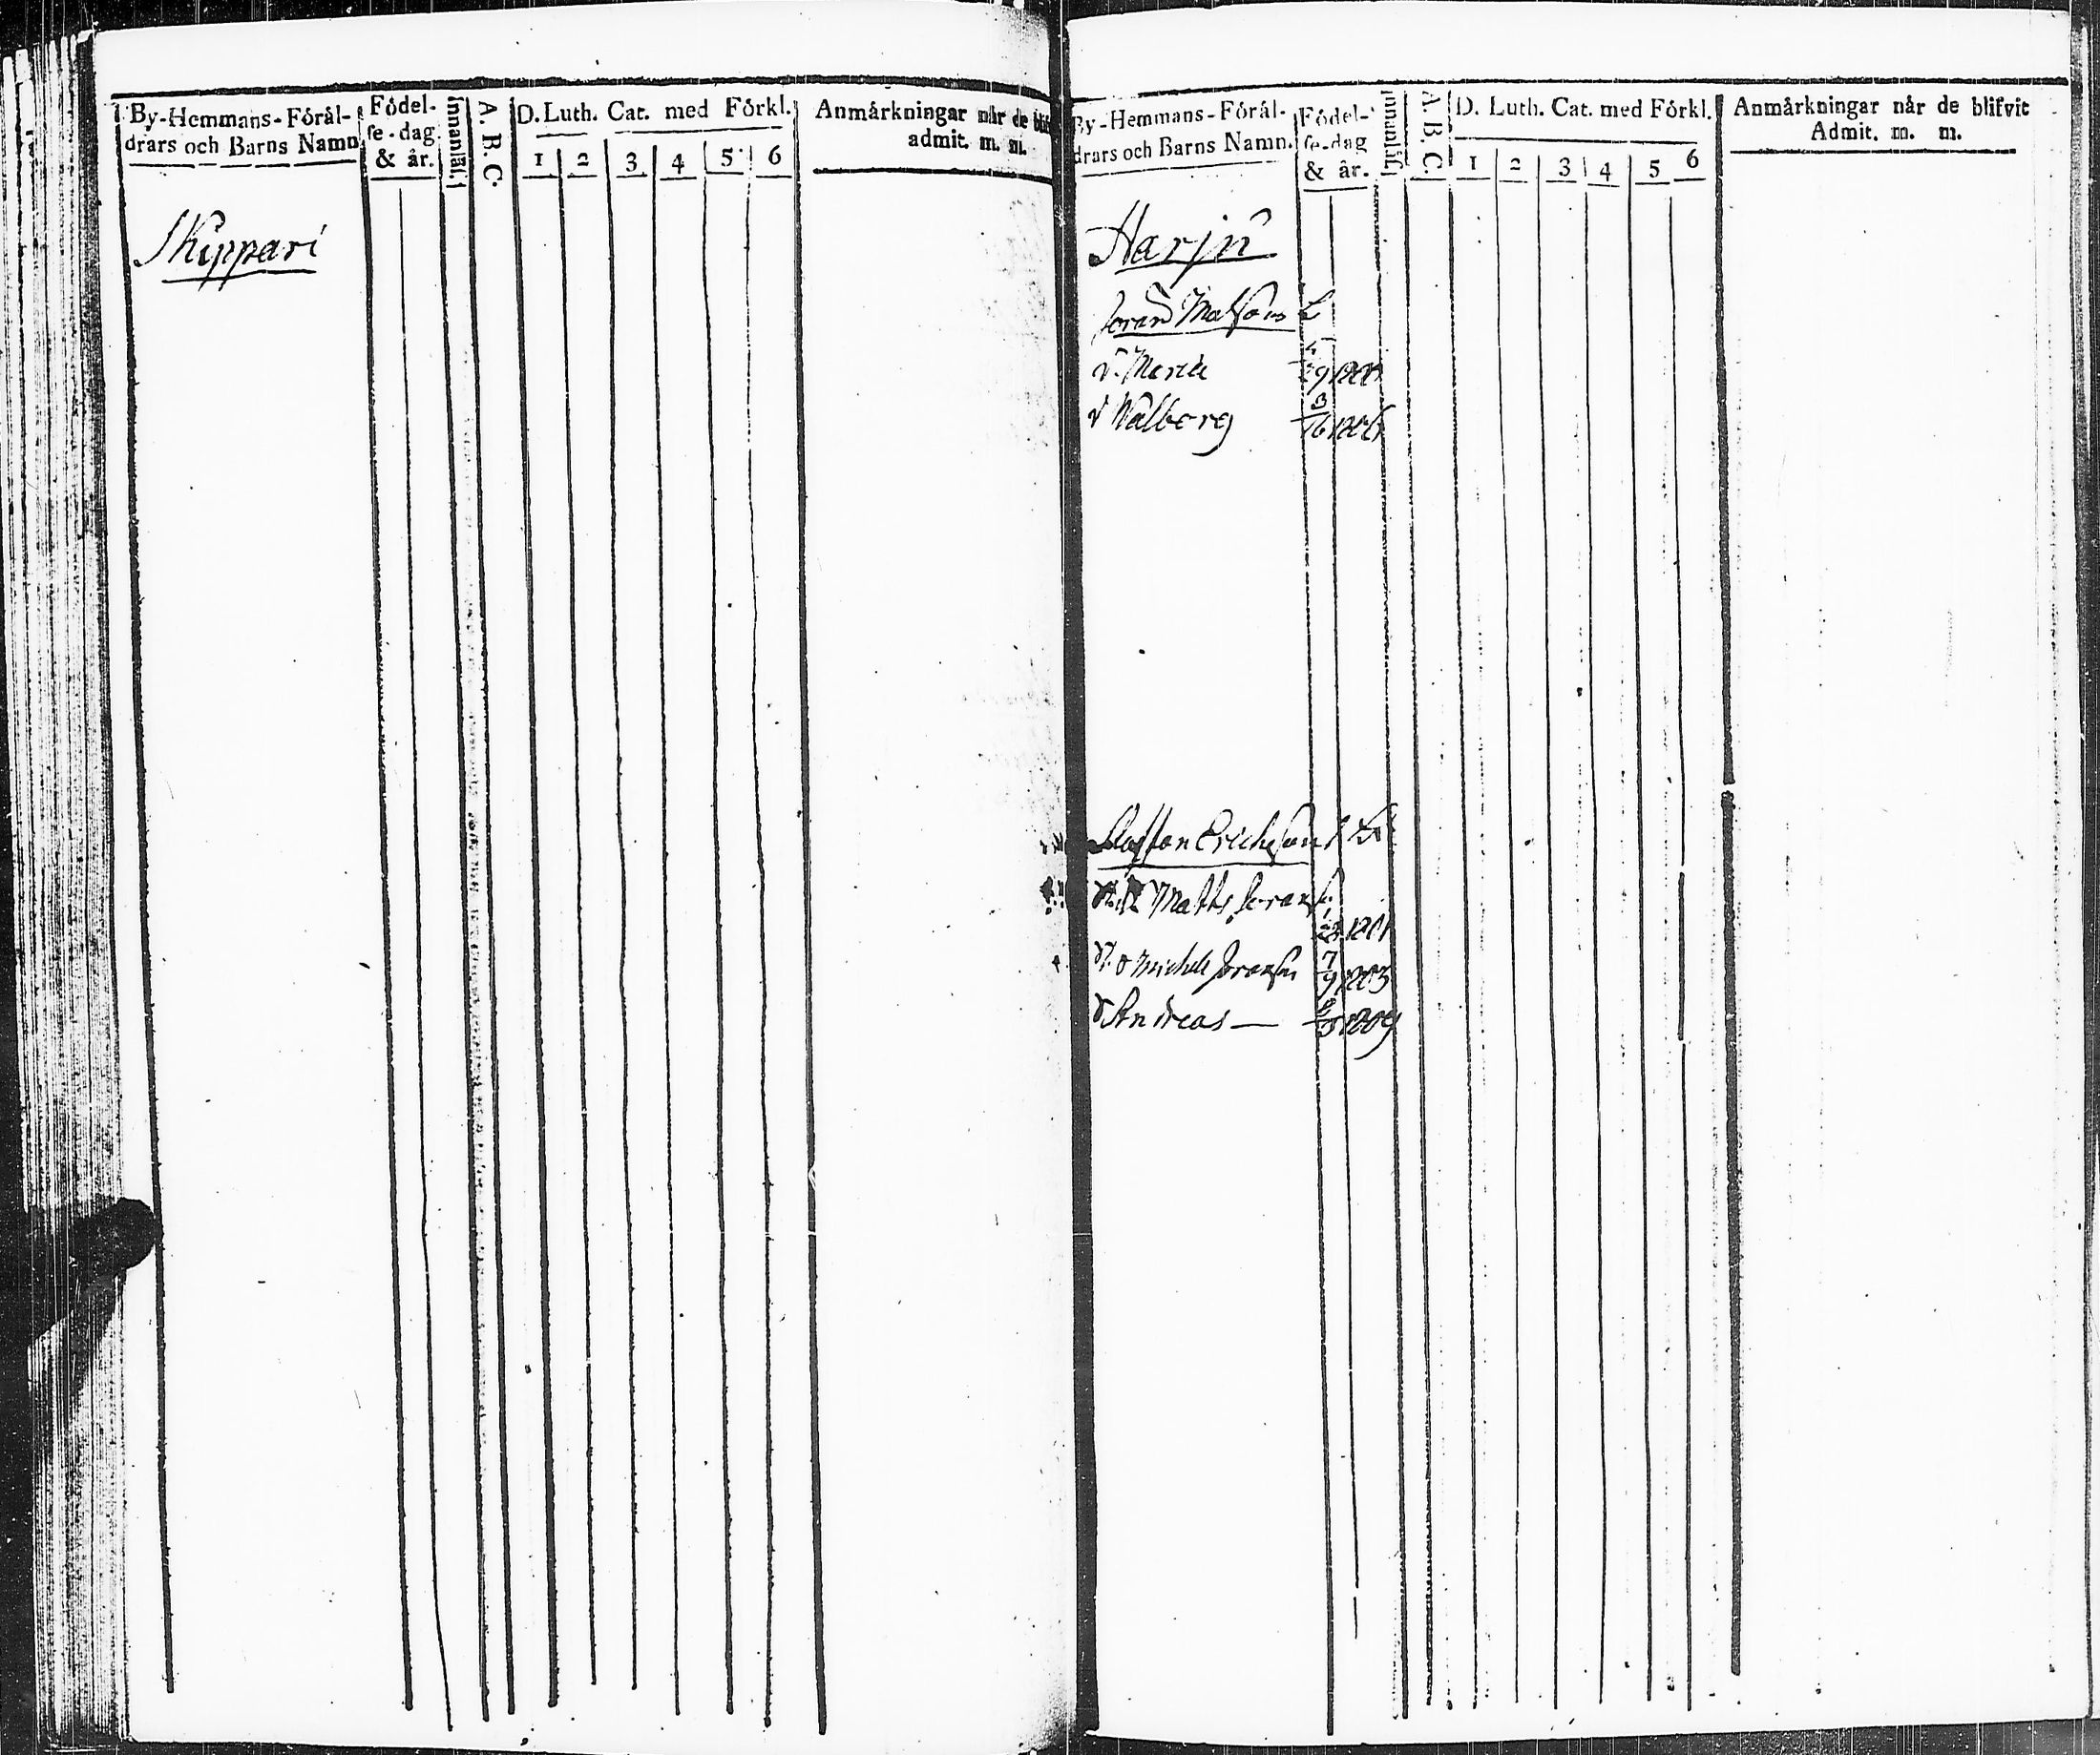 By-Hemmans-Fórál-
drars och Barns Namn
Fódel-
se-dag
& år.
Innanläs.
A. B. C.
D. Luth. Cat. med Fórkl.
1 2 3 4 5 6
Anmårkningar når de
admit. m. m.
Skippari
By-Hemmans-Fórál-
drars och Barns Namn.
Fódel-
se-dag
& år.
Innanläs.
A. B. C.
D. Luth. Cat. med Fórkl.
1 2 3 4 5 6
Anmårkningar når de blifvit
Admit. m. m.
Harju
Joran Matsons
Maria
Walborg
Staffan Erichsons
Matts Joransn
1801
Michell Joransn 7/9 1803
Andreas — 1809